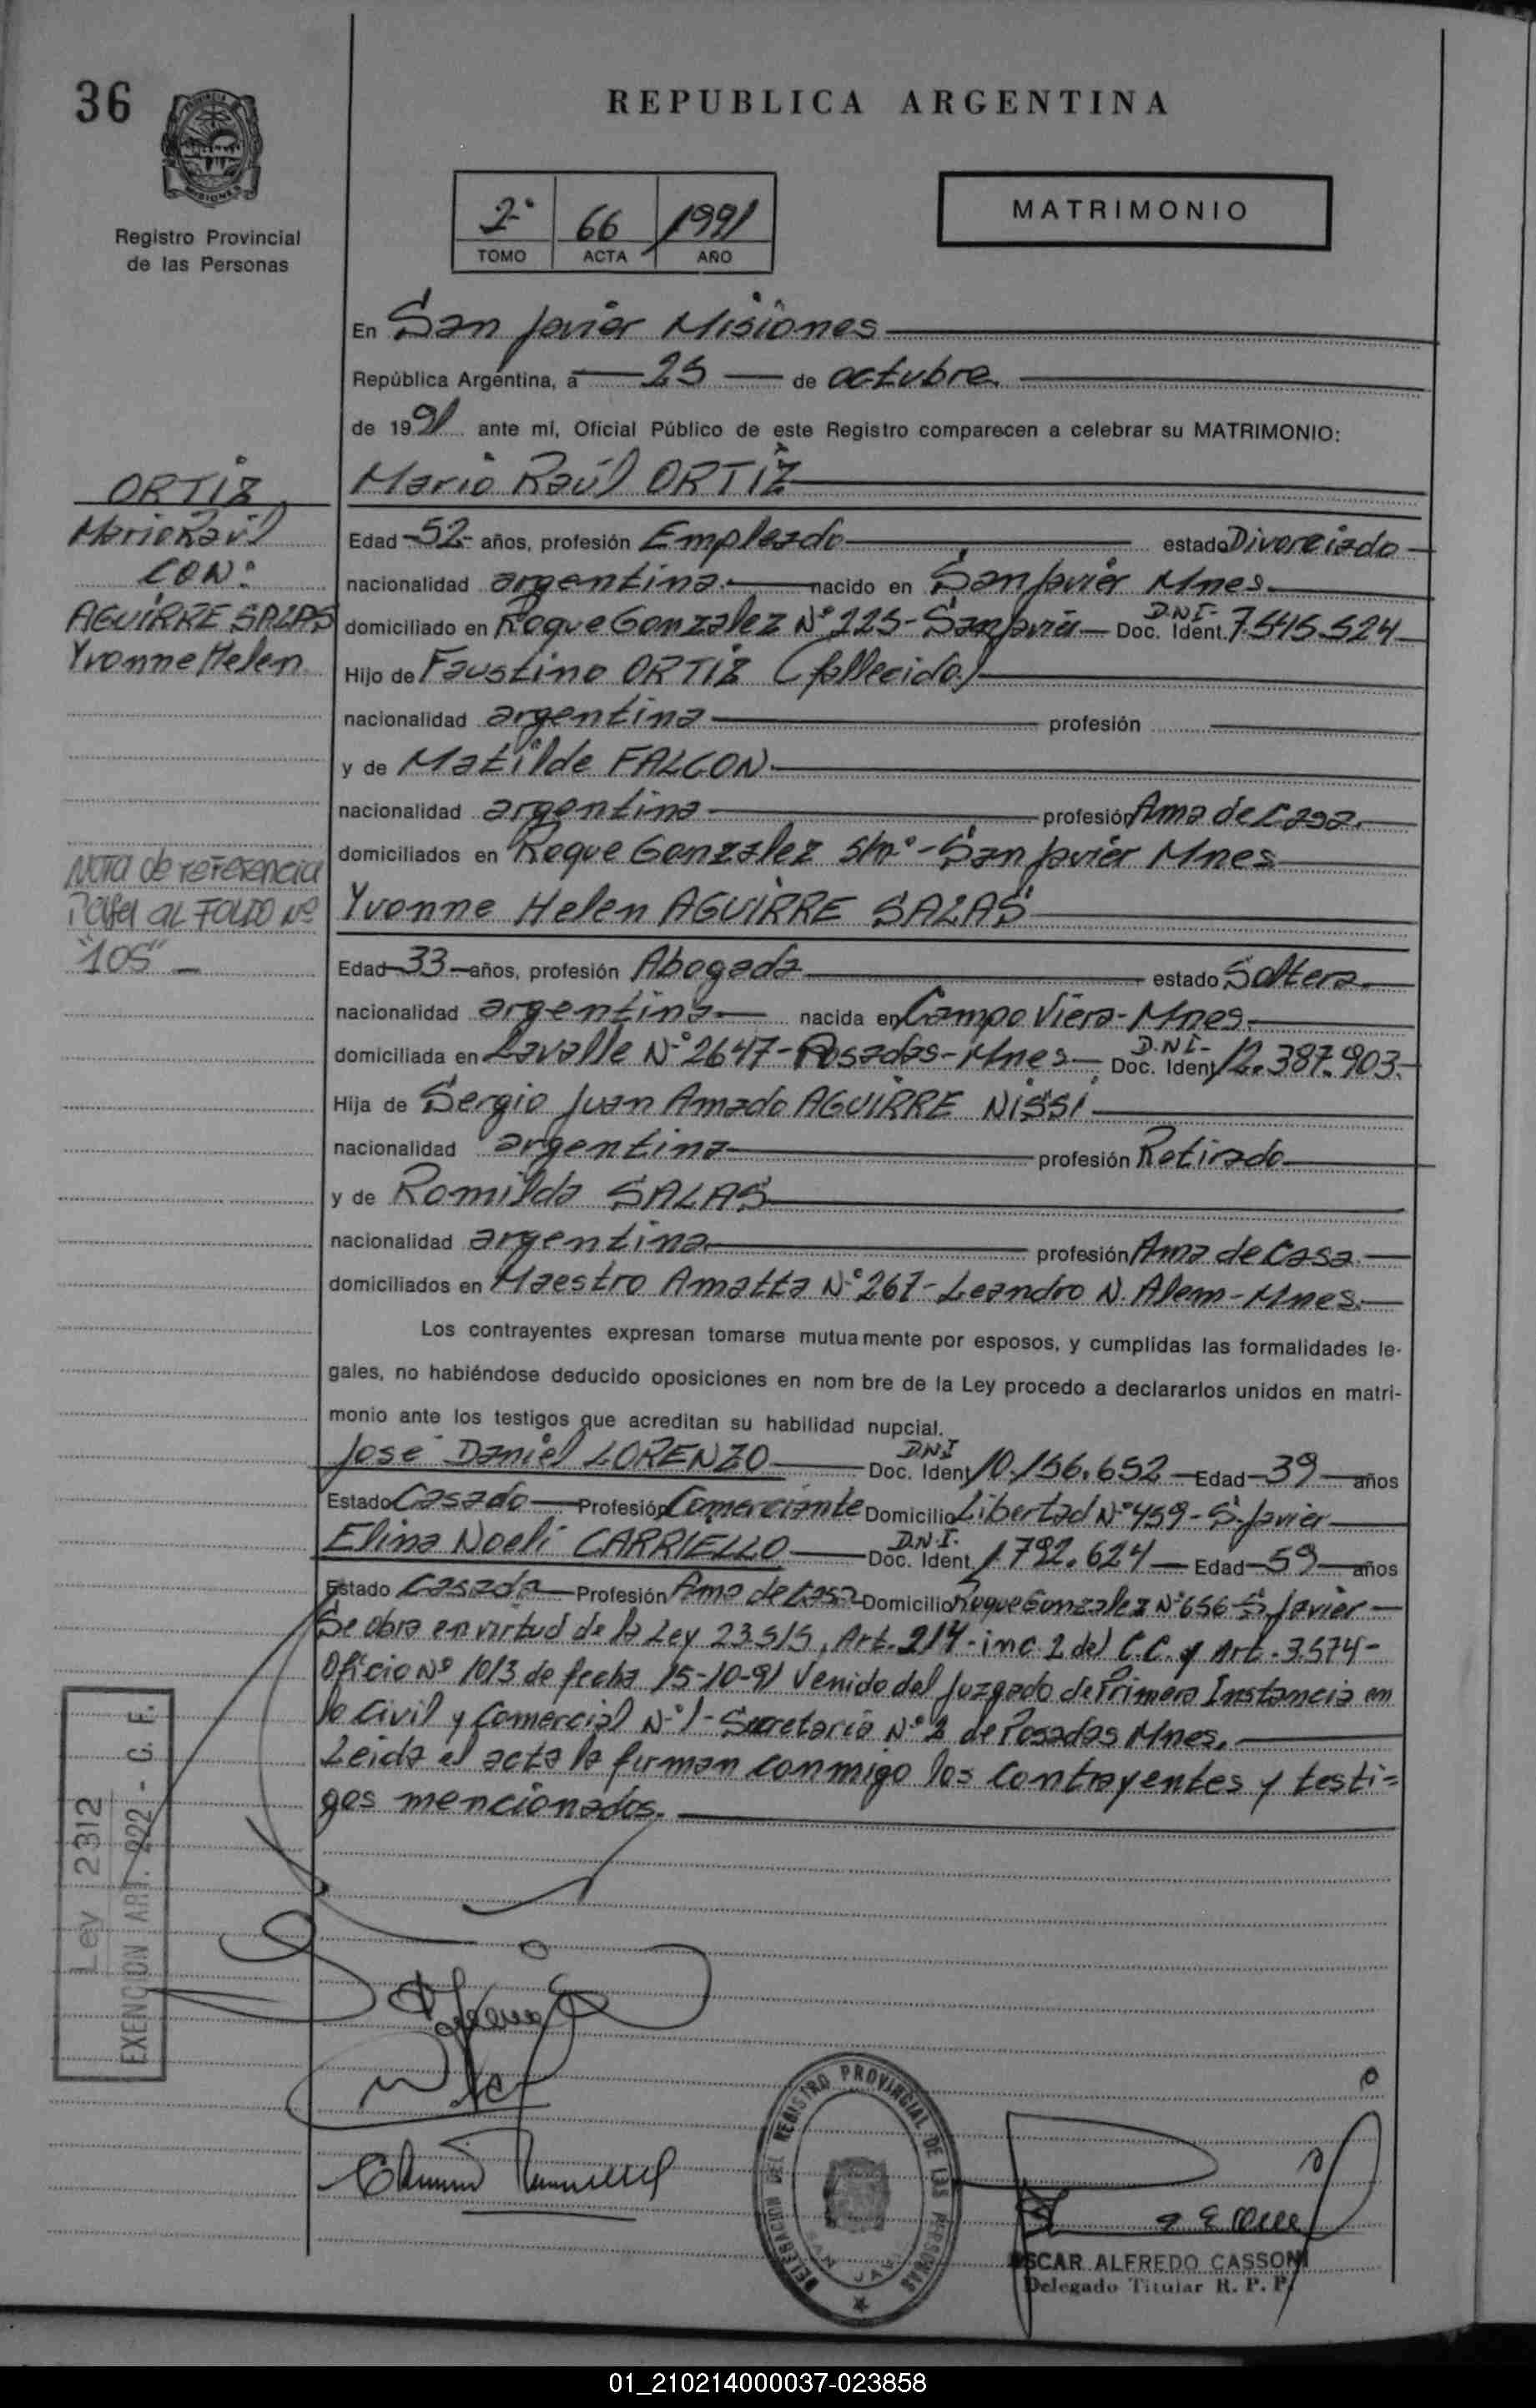 36
REPUBLICA ARGENTINA
MISIONES
Registro Provincial
de las Personas
2° 66 1991
TOMO ACTA AÑO
MATRIMONIO
En San Javier Misiones
República Argentina, a 25 de octubre
de 1991 ante mí, Oficial Público de este Registro comparecen a celebrar su MATRIMONIO:
ORTIZ
Mario Raúl
CON:
AGUIRRE SALAS
Yvonne Helen
Mario Raúl ORTIZ
Edad 52 años, profesión Empleado estado Divorciado
nacionalidad argentina nacido en San Javier Mnes
domiciliado en Roque Gonzalez N° 225 - San Javier Doc. Ident. D.N.I- 7.545.524
Hijo de Faustino ORTIZ (fallecido)
nacionalidad argentina profesión
y de Matilde FALCON
nacionalidad argentina profesión Ama de casa
domiciliados en Roque Gonzalez S/n° - San Javier Mnes
NOTA de referencia
Pasa al FOLIO N°
"105"
Yvonne Helen AGUIRRE SALAS
Edad 33 años, profesión Abogada estado Soltera
nacionalidad argentina nacida en Campo Viera - Mnes
domiciliada en Lavalle N° 2647 - Posadas - Mnes Doc. Ident D.N.I- 12.387.903
Hija de Sergio Juan Amado AGUIRRE NISSI
nacionalidad argentina profesión Retirado
y de Romilda SALAS
nacionalidad argentina profesión Ama de Casa
domiciliados en Maestro Amatta N° 267 - Leandro N. Alem - Mnes
Los contrayentes expresan tomarse mutuamente por esposos, y cumplidas las formalidades le-
gales, no habiéndose deducido oposiciones en nom bre de la Ley procedo a declararlos unidos en matri-
monio ante los testigos que acreditan su habilidad nupcial.
José Daniel LORENZO Doc. Ident D.N.I 10.156.652 Edad 39 años
Estado Casado Profesión Comerciante Domicilio Libertad N° 459 - S. Javier
Elina Noeli CARRIELLO Doc. Ident. D.N.I. 1.792.624 Edad 59 años
Estado Casada Profesión Ama de casa Domicilio Roque Gonzalez N° 656 S. Javier
Se obra en virtud de la Ley 23.515, Art. 214 - inc. 2 del C.C. y Art. 3.574 -
Oficio N° 1013 de fecha 15-10-91 Venido del Juzgado de Primera Instancia en
lo Civil y Comercial N° 1 - Secretaría N° 2 de Posadas Mnes.
Leida el acta la firman conmigo los contrayentes y testi=
gos mencionados.
Ley 2312
EXENCION ART. 222 - C. F.
DELEGACION DEL REGISTRO PROVINCIAL DE LAS PERSONAS
SAN JAVIER
OSCAR ALFREDO CASSONI
Delegado Titular R. P. P.
01_210214000037-023858